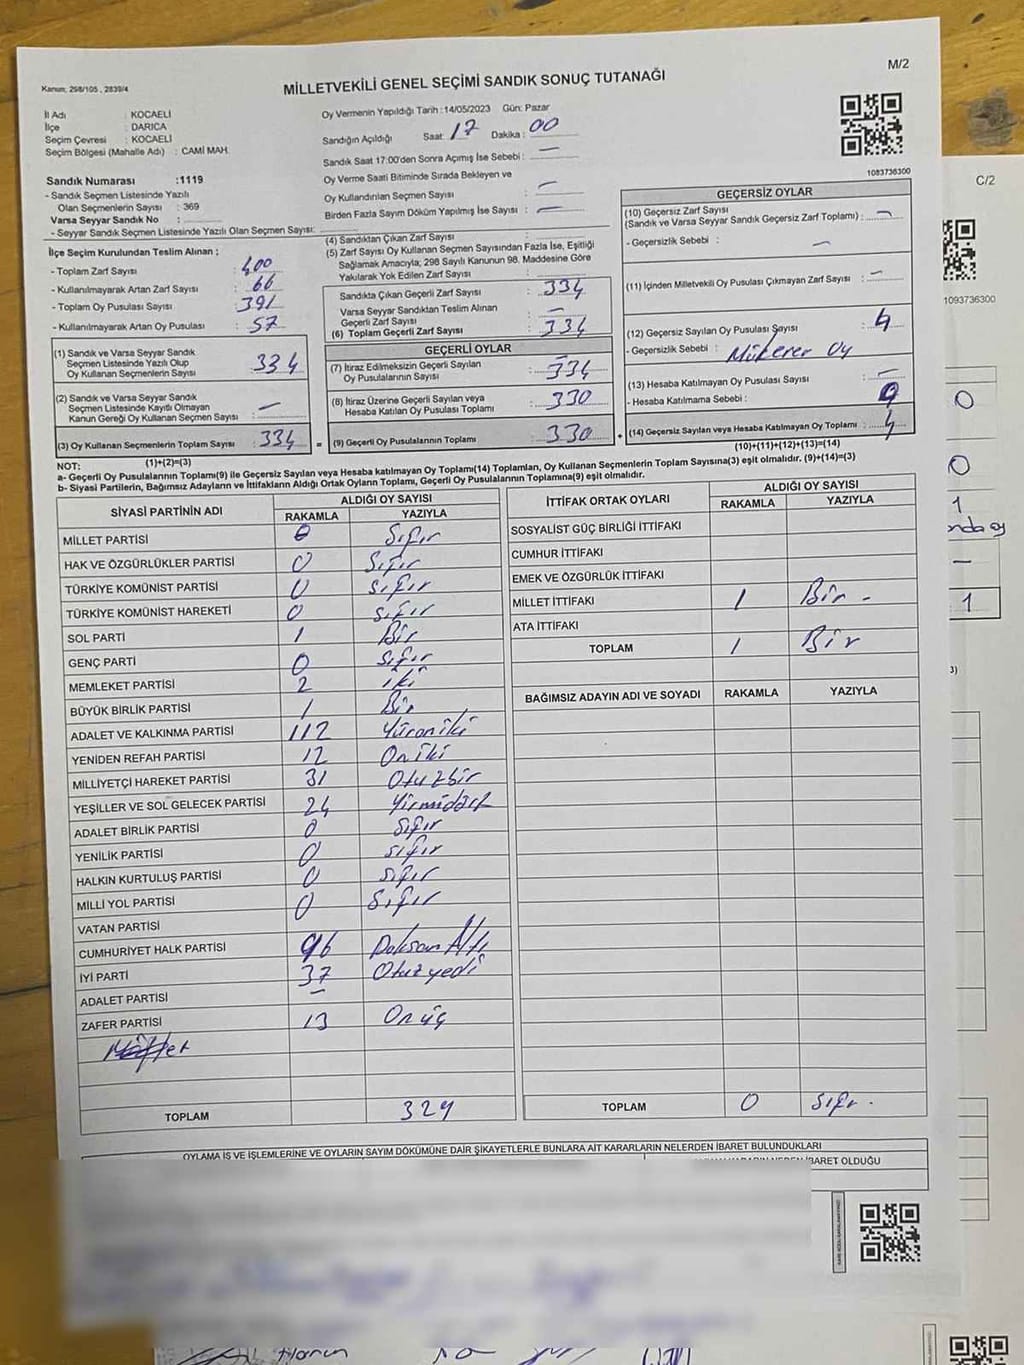 M/2
Kanun; 298/105 , 2839/4
MİLLETVEKİLİ GENEL SEÇİMİ SANDIK SONUÇ TUTANAĞI
İl Adı : KOCAELİ
İlçe : DARICA
Seçim Çevresi : KOCAELİ
Seçim Bölgesi (Mahalle Adı) : CAMİ MAH.
Sandık Numarası :1119
- Sandık Seçmen Listesinde Yazılı
Olan Seçmenlerin Sayısı : 369
Varsa Seyyar Sandık No :
- Seyyar Sandık Seçmen Listesinde Yazılı Olan Seçmen Sayısı:
Oy Vermenin Yapıldığı Tarih :14/05/2023 Gün: Pazar
Sandığın Açıldığı Saat: 17 Dakika : 00
Sandık Saat 17:00'den Sonra Açımış İse Sebebi : —
Oy Verme Saati Bitiminde Sırada Bekleyen ve
Oy Kullandırılan Seçmen Sayısı : —
Birden Fazla Sayım Döküm Yapılmış İse Sayısı : —
1083736300
İlçe Seçim Kurulundan Teslim Alınan ;
- Toplam Zarf Sayısı : 400
- Kullanılmayarak Artan Zarf Sayısı : 66
- Toplam Oy Pusulası Sayısı : 391
- Kullanılmayarak Artan Oy Pusulası : 57
(1) Sandık ve Varsa Seyyar Sandık
Seçmen Listesinde Yazılı Olup
Oy Kullanan Seçmenlerin Sayısı : 334
(2) Sandık ve Varsa Seyyar Sandık
Seçmen Listesinde Kayıtlı Olmayan
Kanun Gereği Oy Kullanan Seçmen Sayısı : —
(3) Oy Kullanan Seçmenlerin Toplam Sayısı : 334
(1)+(2)=(3)
(4) Sandıktan Çıkan Zarf Sayısı :
(5) Zarf Sayısı Oy Kullanan Seçmen Sayısından Fazla İse, Eşitliği
Sağlamak Amacıyla; 298 Sayılı Kanunun 98. Maddesine Göre
Yakılarak Yok Edilen Zarf Sayısı :
Sandıkta Çıkan Geçerli Zarf Sayısı : 334
Varsa Seyyar Sandıktan Teslim Alınan
Geçerli Zarf Sayısı : —
(6) Toplam Geçerli Zarf Sayısı : 334
GEÇERLİ OYLAR
(7) İtiraz Edilmeksizin Geçerli Sayılan
Oy Pusulalarının Sayısı : 334
(8) İtiraz Üzerine Geçerli Sayılan veya
Hesaba Katılan Oy Pusulası Toplamı : 330
= (9) Geçerli Oy Pusulalarının Toplamı : 330 +
GEÇERSİZ OYLAR
(10) Geçersiz Zarf Sayısı
(Sandık ve Varsa Seyyar Sandık Geçersiz Zarf Toplamı) : —
- Geçersizlik Sebebi : —
(11) İçinden Milletvekili Oy Pusulası Çıkmayan Zarf Sayısı : —
(12) Geçersiz Sayılan Oy Pusulası Sayısı : 4
- Geçersizlik Sebebi : Mükerer Oy
(13) Hesaba Katılmayan Oy Pusulası Sayısı : —
- Hesaba Katılmama Sebebi :
(14) Geçersiz Sayılan veya Hesaba Katılmayan Oy Toplamı : 4
(10)+(11)+(12)+(13)=(14)
NOT:
a- Geçerli Oy Pusulalarının Toplamı(9) ile Geçersiz Sayılan veya Hesaba katılmayan Oy Toplamı(14) Toplamları, Oy Kullanan Seçmenlerin Toplam Sayısına(3) eşit olmalıdır. (9)+(14)=(3)
b- Siyasi Partilerin, Bağımsız Adayların ve İttifakların Aldığı Ortak Oyların Toplamı, Geçerli Oy Pusulalarının Toplamına(9) eşit olmalıdır.
SİYASİ PARTİNİN ADI ALDIĞI OY SAYISI
RAKAMLA YAZIYLA
MİLLET PARTİSİ 0 Sıfır
HAK VE ÖZGÜRLÜKLER PARTİSİ 0 Sıfır
TÜRKİYE KOMÜNİST PARTİSİ 0 Sıfır
TÜRKİYE KOMÜNİST HAREKETİ 0 Sıfır
SOL PARTİ 1 Bir
GENÇ PARTİ 0 Sıfır
MEMLEKET PARTİSİ 2 iki
BÜYÜK BİRLİK PARTİSİ 1 Bir
ADALET VE KALKINMA PARTİSİ 112 Yüzoniki
YENİDEN REFAH PARTİSİ 12 Oniki
MİLLİYETÇİ HAREKET PARTİSİ 31 Otuzbir
YEŞİLLER VE SOL GELECEK PARTİSİ 24 Yirmidört
ADALET BİRLİK PARTİSİ 0 Sıfır
YENİLİK PARTİSİ 0 Sıfır
HALKIN KURTULUŞ PARTİSİ 0 Sıfır
MİLLİ YOL PARTİSİ 0 Sıfır
VATAN PARTİSİ
CUMHURİYET HALK PARTİSİ 96 Doksan Altı
İYİ PARTİ 37 Otuzyedi
ADALET PARTİSİ —
ZAFER PARTİSİ 13 Onüç
TOPLAM 329
İTTİFAK ORTAK OYLARI ALDIĞI OY SAYISI
RAKAMLA YAZIYLA
SOSYALİST GÜÇ BİRLİĞİ İTTİFAKI
CUMHUR İTTİFAKI
EMEK VE ÖZGÜRLÜK İTTİFAKI
MİLLET İTTİFAKI 1 Bir -
ATA İTTİFAKI
TOPLAM 1 Bir
BAĞIMSIZ ADAYIN ADI VE SOYADI RAKAMLA YAZIYLA
TOPLAM 0 Sıfır.
OYLAMA İŞ VE İŞLEMLERİNE VE OYLARIN SAYIM DÖKÜMÜNE DAİR ŞİKAYETLERLE BUNLARA AİT KARARLARIN NELERDEN İBARET BULUNDUKLARI
İBARET OLDUĞU
C/2
1093736300
0
0
1
nda oy
—
1
3)
Harun